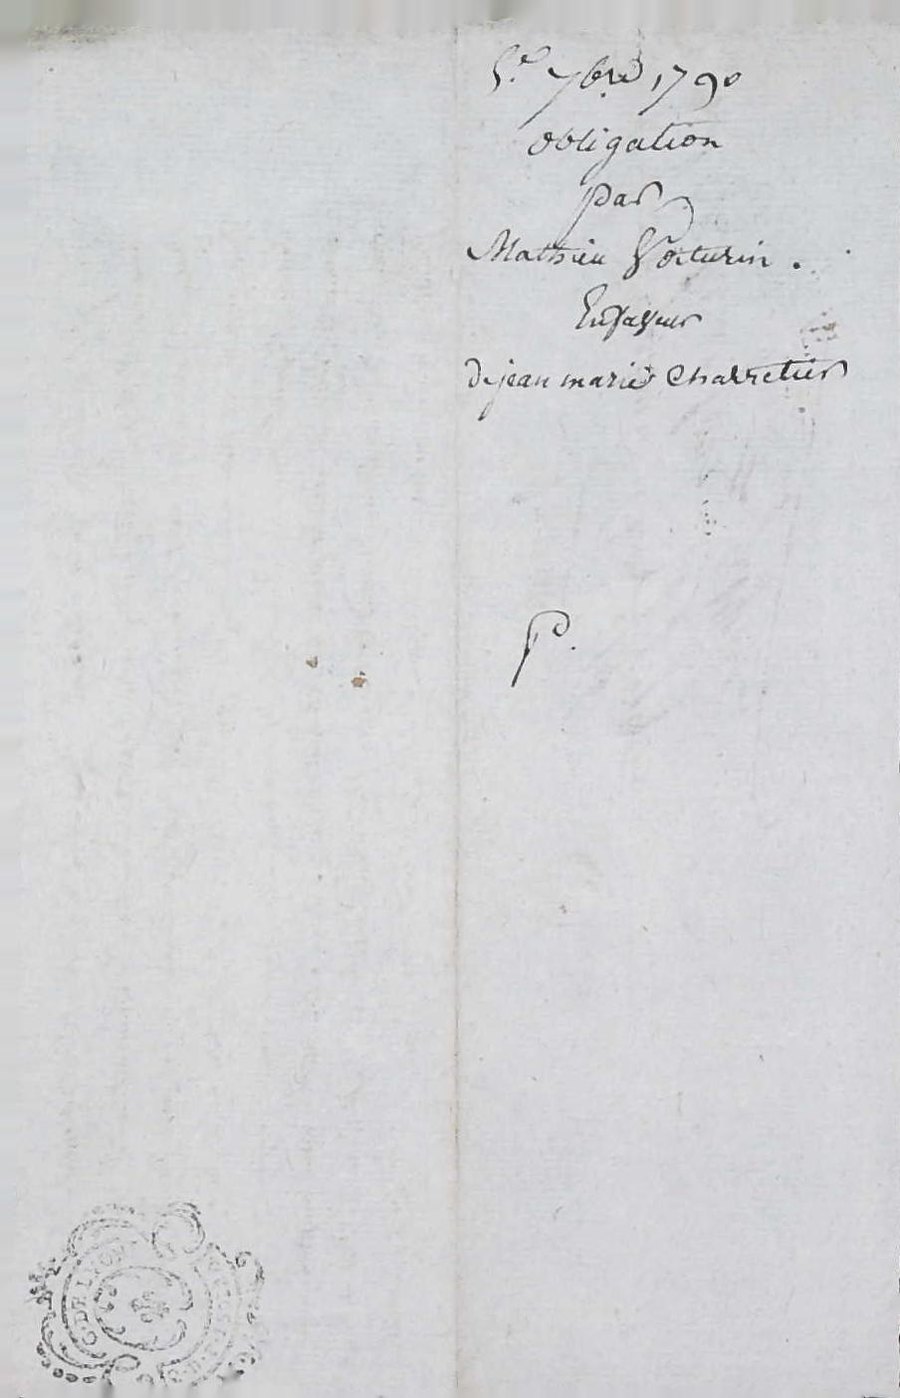 5.e 7bre 1790
obligation
par
Mathieu Voiturin.
En faveur
de jean marie Charretier
P.
G. DE LYON